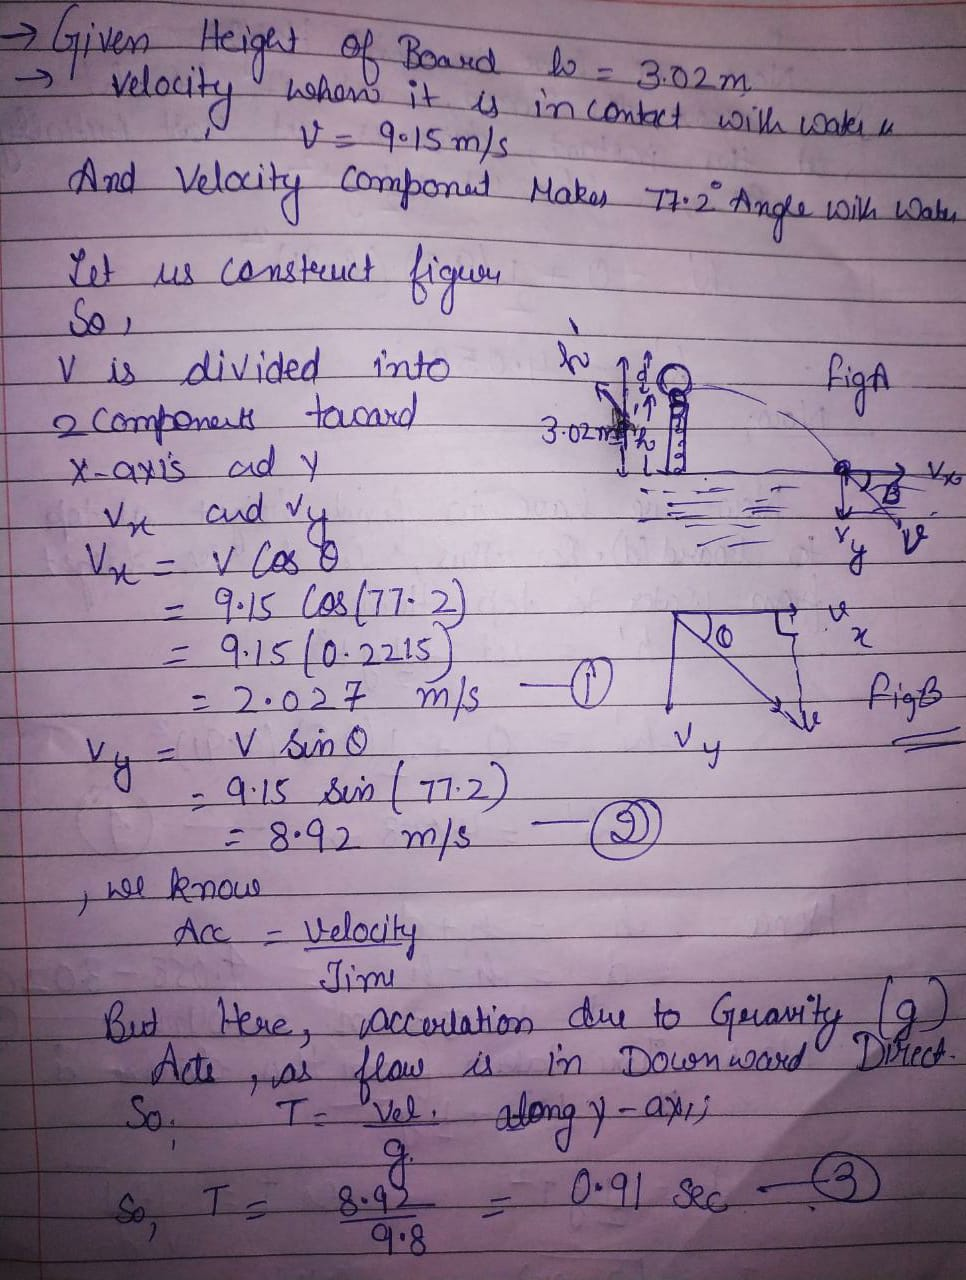 → Given Height of Board h = 3.02m
→ Velocity when it is in contact with water is
V = 9.15 m/s
And Velocity Component Makes 77.2° Angle with Water
Let us construct figure
So,
V is divided into
2 Components toward
x-axis and y
Vx and Vy
h'
d
3.02m
h
Fig A
Vx
B
Vy
V
Vx = V Cos θ
= 9.15 Cos(77.2)
= 9.15 (0.2215)
= 2.027 m/s — ①
θ
Vx
V
Vy
Fig B
Vy = V Sin θ
= 9.15 Sin (77.2)
= 8.92 m/s — ②
, we know
Acc = Velocity
Time
But Here, accerlation due to Gravity (g)
Acts, as flow is in Downward Direct.
So, T = Vel. along y-axis
g.
So, T = 8.92 = 0.91 Sec — ③
9.8